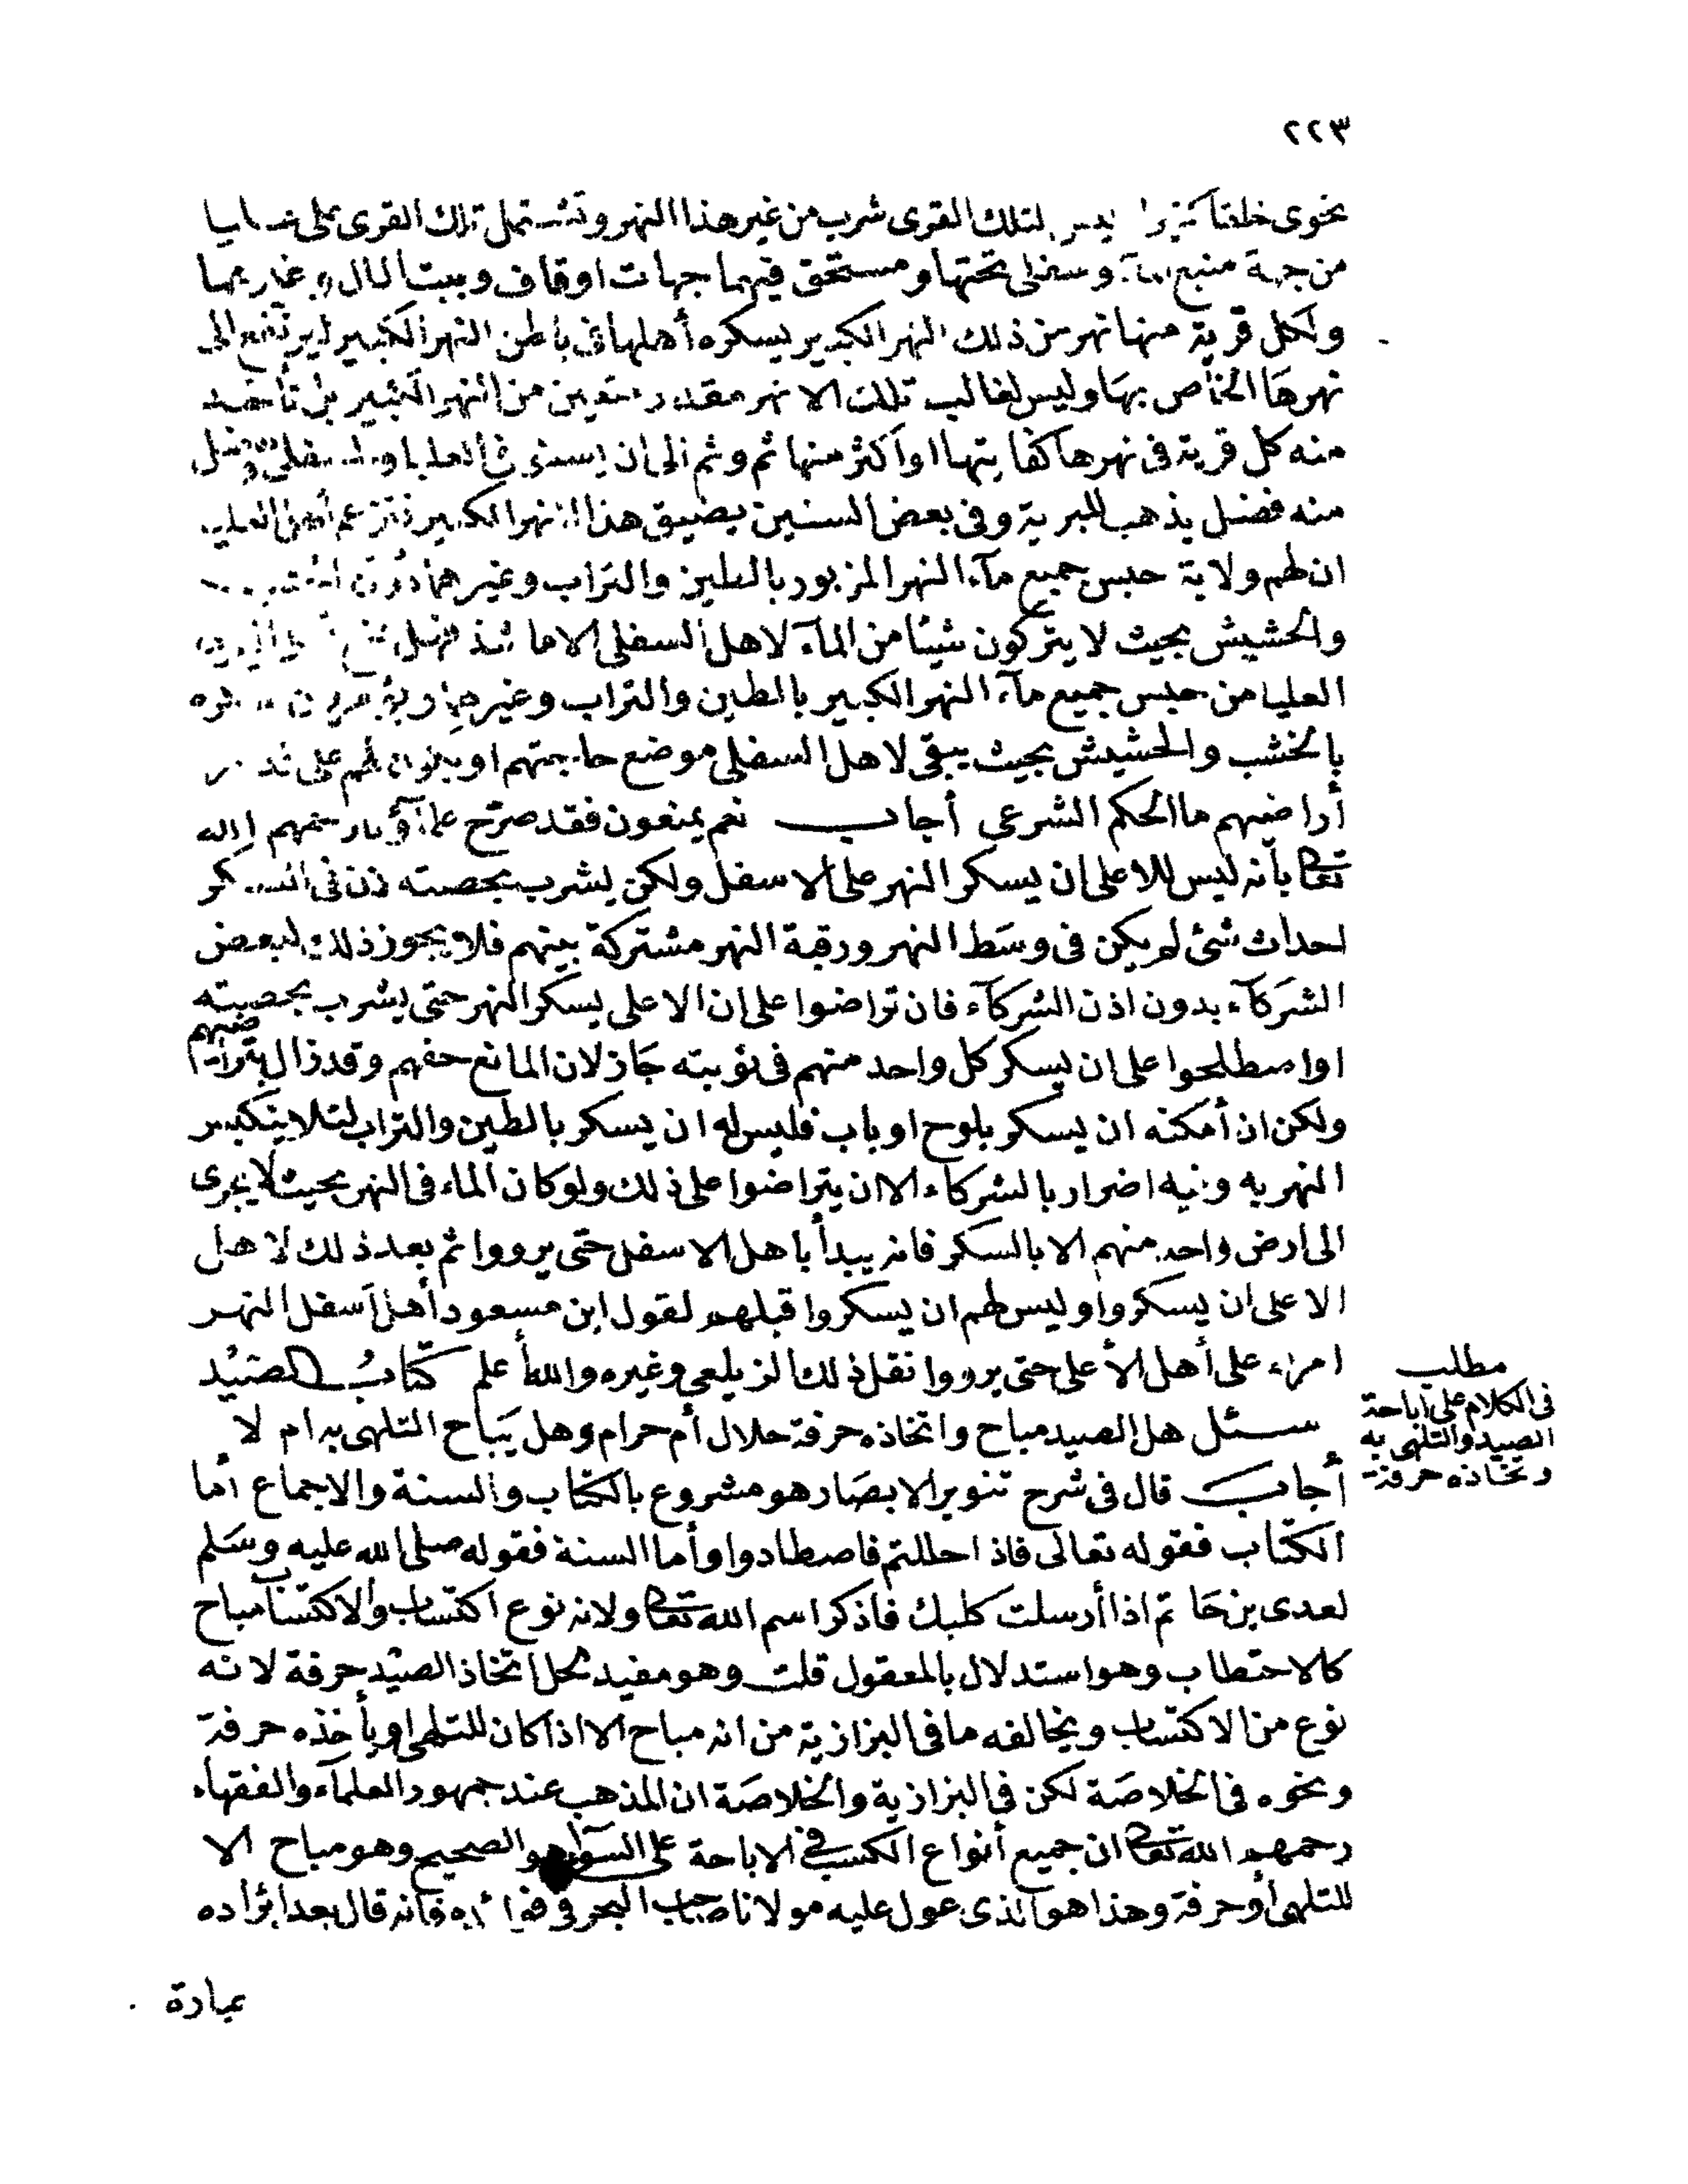 ٢٢٣
تحوى خلقا كثيرا ليس لتلك القرى شرب من غير هذا النهر وتشتمل تلك القرى على عليا
من جهة منبع الماء وسفلى تحتها ومستحق فيهما جهات اوقاف وبيت المال وغيرهما
ولكل قرية منها نهر من ذلك النهر الكبير يسكره أهلها فى باطن النهر الكبير ليرتفع الى
نهرها الخاص بها وليس لغالب تلك الانهر مقدر متعين من النهر الكبير بل تأخذ
منه كل قرية فى نهرها كفايتها او أكثر منها ثم وثم الى ان يستوى العليا والسفلى
منه فضل يذهب للبرية وفى بعض السنين يضيق هذا النهر الكبير فتزعم أهل العليا
ان لهم ولاية حبس جميع مآء النهر المزبور بالطين والتراب وغيرهما دون
والحشيش بحيث لا يتركون شيئا من المآء لاهل السفلى الا ما
العليا من حبس جميع مآء النهر الكبير بالطين والتراب وغيرهما
بالخشب والحشيش بحيث يبقى لاهل السفلى موضع حاجتهم او يكون لهم على قدر
أراضيهم ما الحكم الشرعى أجاب نعم يمنعون فقد صرّح علمآؤنا رحمهم الله
تعالى بأنه ليس للاعلى ان يسكر النهر على الاسفل ولكن يشرب بحصته لان فى السكر
احداث شئ لم يكن فى وسط النهر ورقبة النهر مشتركة بينهم فلا يجوز ذلك لبعض
الشركآء بدون اذن الشركآء فان تراضوا على ان الاعلى يسكر النهر حتى يشرب بحصته
او اصطلحوا على ان يسكر كل واحد منهم فى نوبته جاز لان المانع حقهم وقد زال بتراضيهم
ولكن ان أمكنه ان يسكر بلوح او باب فليس له ان يسكر بالطين والتراب لئلا ينكبس
النهر به وفيه اضرار بالشركاء الا ان يتراضوا على ذلك ولو كان الماء فى النهر بحيث لا يجرى
الى ارض واحد منهم الا بالسكر فانه يبدأ باهل الاسفل حتى يرووا ثم بعد ذلك لاهل
الاعلى ان يسكروا وليس لهم ان يسكروا قبلهم لقول ابن مسعود أهل أسفل النهر
امراء على أهل الأعلى حتى يرووا نقل ذلك الزيلعى وغيره والله أعلم كتاب الصيد
سئل هل الصيد مباح واتخاذه حرفة حلال أم حرام وهل يباح التلهى به ام لا
أجاب قال فى شرح تنوير الابصار هو مشروع بالكتاب والسنة والاجماع أما
الكتاب فقوله تعالى فاذا حللتم فاصطادوا وأما السنة فقوله صلى الله عليه وسلم
لعدى بن حاتم اذا أرسلت كلبك فاذكر اسم الله تعالى ولانه نوع اكتساب والاكتساب مباح
كالاحتطاب وهو استدلال بالمعقول قلت وهو مفيد لحل اتخاذ الصيد حرفة لانه
نوع من الاكتساب ويخالفه ما فى البزازية من انه مباح الا اذا كان للتلهى او يأخذه حرفة
ونحوه فى الخلاصة لكن فى البزازية والخلاصة ان المذهب عند جمهور العلمآء والفقهاء
رحمهم الله تعالى ان جميع أنواع الكسب فى الاباحة على السوآء هو الصحيح وهو مباح الا
للتلهى أو حرفة وهذا هو الذى عول عليه مولانا صاحب البحر فى فوائده فانه قال بعد ايراده
عبارة
مطلب
فى الكلام على اباحة
الصيد والتلهى به
واتخاذه حرفة